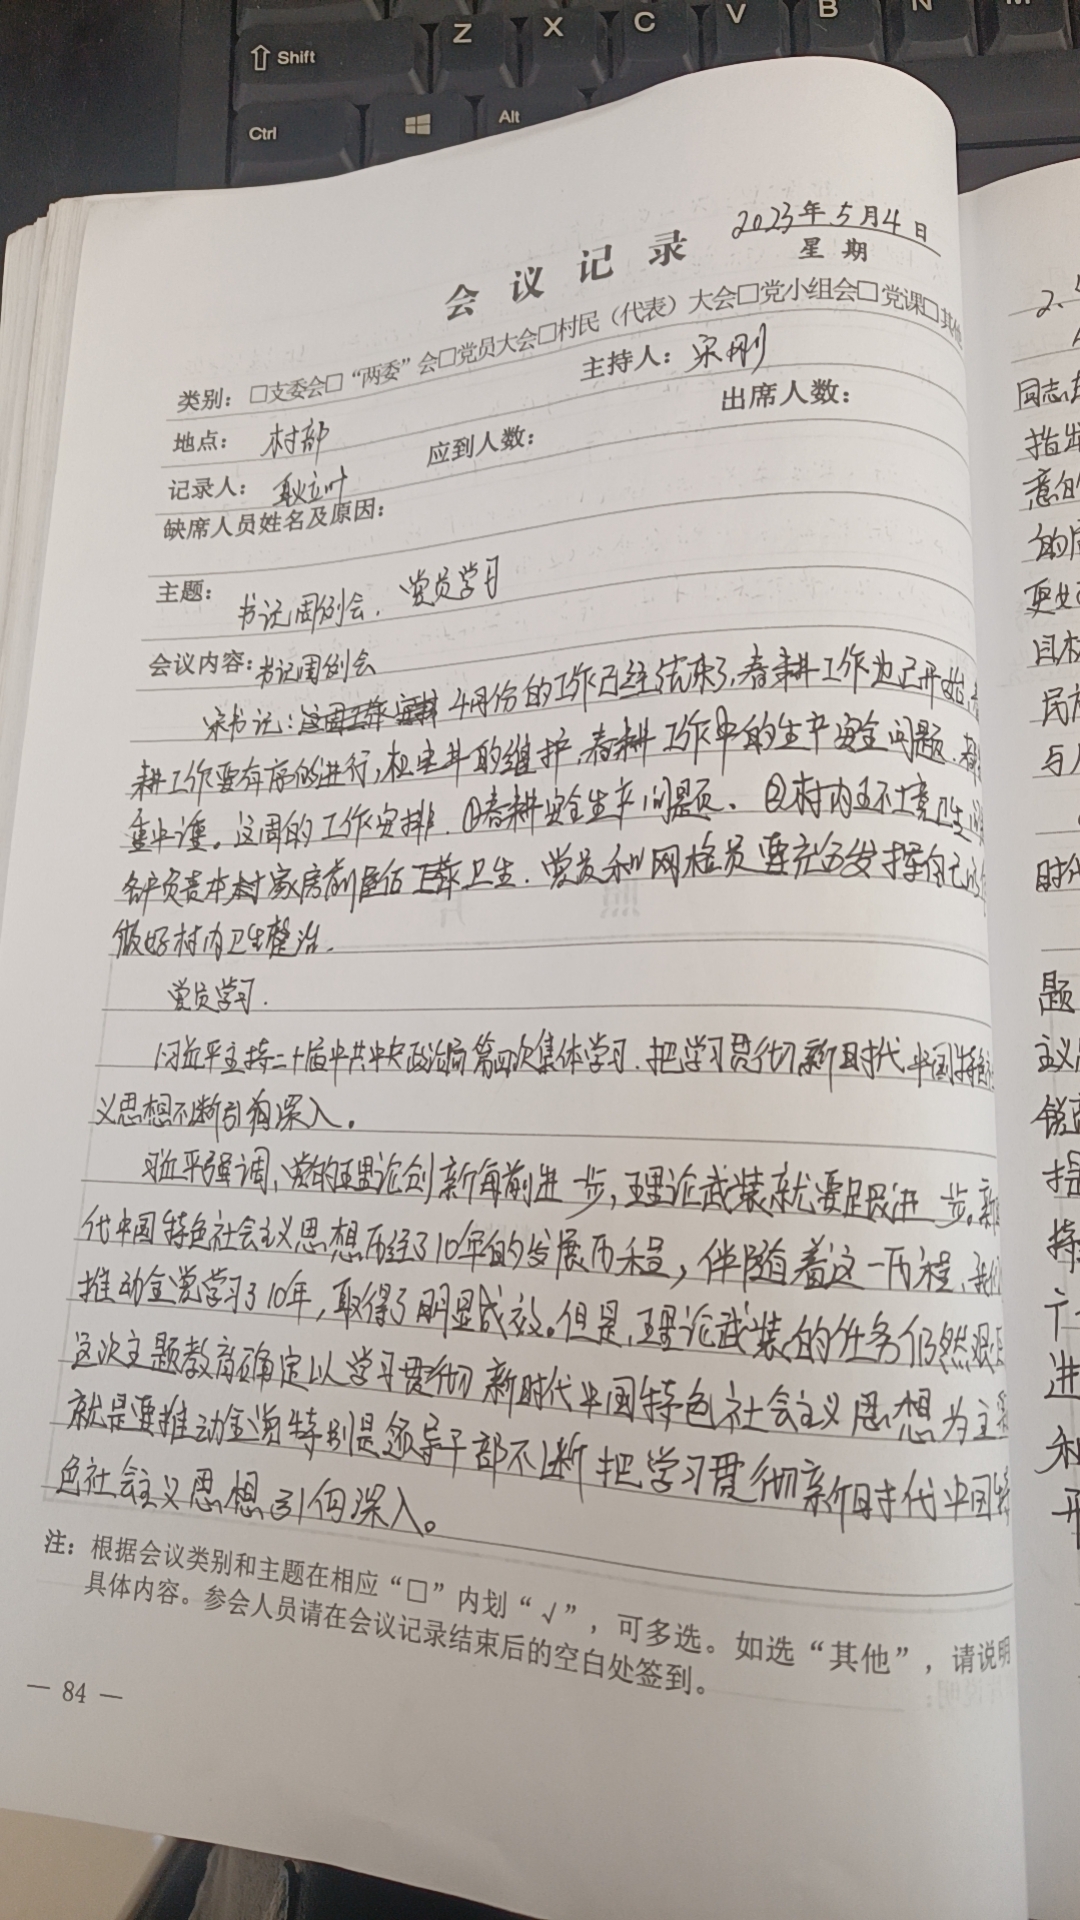 Shift
Z
X
C
V
B
N
M
Ctrl
Alt
2023年5月4日
会议记录
星期
类别：□支委会□“两委”会□党员大会□村民（代表）大会□党小组会□党课□其他
地点：村部 主持人：宋刚
记录人：耿立叶 应到人数： 出席人数：
缺席人员姓名及原因：
主题：书记周例会．党员学习
会议内容：书记周例会
宋书记：4月份的工作已经结束了，春耕工作也已开始，
耕工作要有序的进行，机电井的维护，春耕工作中的生产安全问题．
重中重。这周的工作安排．①春耕安全生产问题、②村内环境卫生
各户负责本村家房前屋后卫生．党员和网格员要充分发挥自己的
做好村内卫生整治．
党员学习．
1习近平主持二十届中共中央政治局第四次集体学习．把学习贯彻新时代中国特色社
义思想不断引向深入。
习近平强调，党的理论创新每前进一步，理论武装就要跟进一步。新
代中国特色社会主义思想历经了10年的发展历程，伴随着这一历程、我们
推动全党学习了10年，取得了明显成效。但是，理论武装的任务仍然艰
这次主题教育确定以学习贯彻新时代中国特色社会主义思想为主
就是要推动全党特别是领导干部不断把学习贯彻新时代中国特
色社会主义思想引向深入。
注：根据会议类别和主题在相应“□”内划“√”，可多选。如选“其他”，请说明
具体内容。参会人员请在会议记录结束后的空白处签到。
— 84 —
2、
同志
指出
意的
的
更好
目标
民族
与人
时代
题
主义
锐
持
进